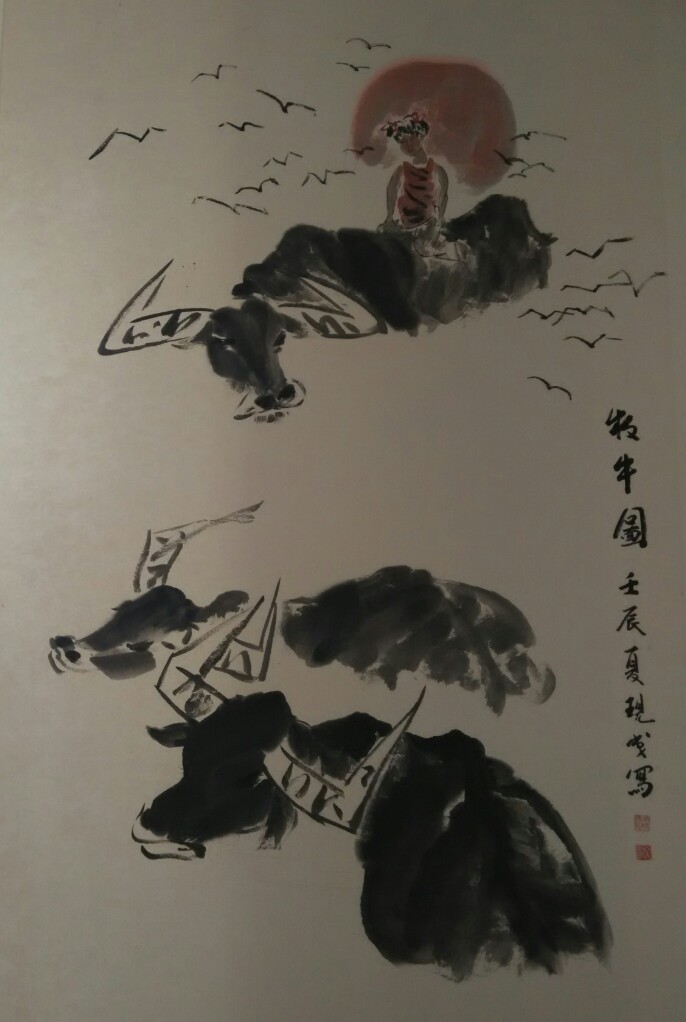 牧牛圖壬辰夏現戈寫